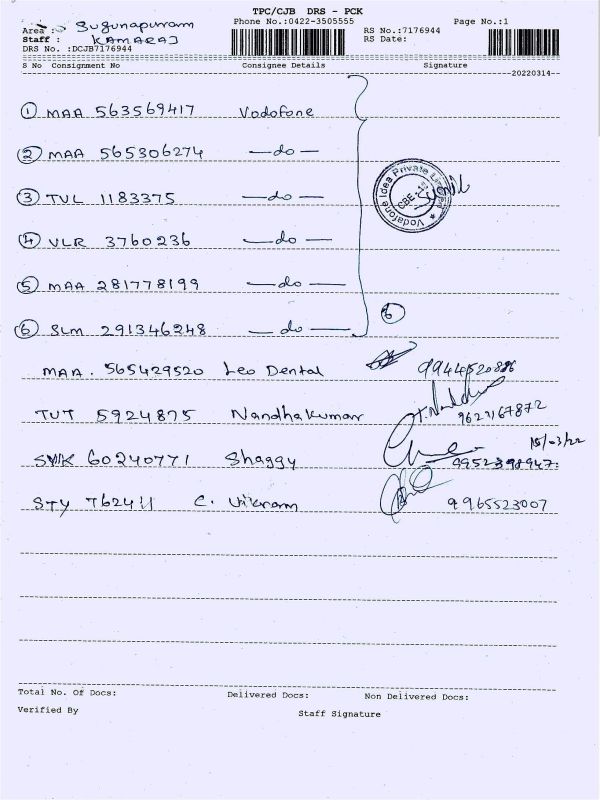 TPC/CJB DRS - PCK
Area : Sugunapurram Phone No.:0422-3505555 Page No.:1
Staff : KAMARAJ RS No.:7176944
DRS No. :DCJB7176944 RS Date:
S No Consignment No Consignee Details Signature
20220314
1 MAA 563569417 Vodofone
2 MAA 565306274 — do —
3 TVL 1183375 — do —
4 VLR 3760236 — do —
5 MAA 281778199 — do —
6 SLM 291346248 — do — 6
Vodafone Idea Private Limited
CBE
MAA. 565429520 Leo Dental
TUT 5924875 Nandhakumar 9621167872
15/03/22
60240771 Shaggy
STY 762411 C. Vikram 9965523007
Total No. Of Docs: Delivered Docs: Non Delivered Docs:
Verified By Staff Signature